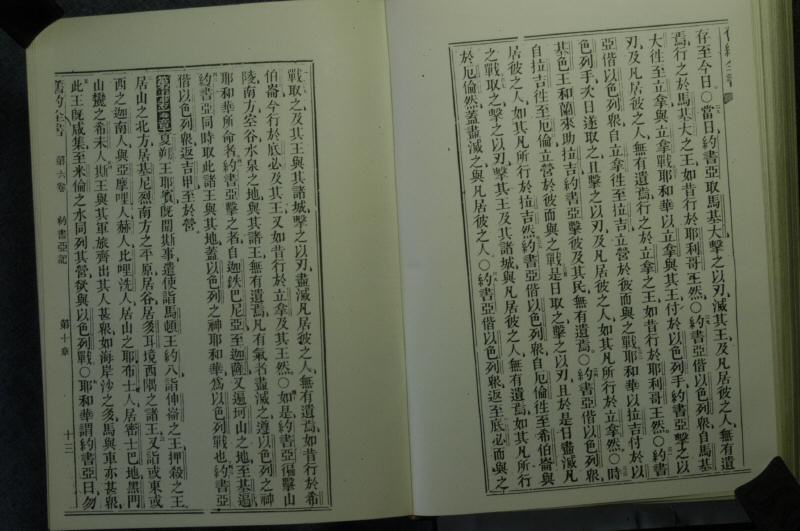 存至今日○當日約書亞取馬基大擊之以刃滅其王及凡居彼之人無有遺
焉行之於馬基大之王如昔行於耶利哥王然○約書亞偕以色列衆自馬基
大徃至立拿與立拿戰耶和華以立拿與其王付於以色列手約書亞擊之以
刃及凡居彼之人無有遺焉行之於立拿之王如昔行於耶利哥王然○約書
亞偕以色列衆自立拿徃至拉吉立營於彼而與之戰耶和華以拉吉付於以
色列手次日遂取之且擊之以刃及凡居彼之人如其凡所行於立拿然○時
基色王和蘭來助拉吉約書亞擊彼及其民無有遺焉○約書亞偕以色列衆
自拉吉徃至厄倫立營於彼而與之戰是日取之擊之以刃且於是日盡滅凡
居彼之人如其凡所行於拉吉然約書亞偕以色列衆自厄倫徃至希伯崙與
之戰取之擊之以刃擊其王及其諸城與凡居彼之人無有遺焉如其凡所行
於厄倫然蓋盡滅之與凡居彼之人○約書亞偕以色列衆返至底必而與之
戰取之及其王與其諸城擊之以刃盡滅凡居彼之人無有遺焉如昔行於希
伯崙今行於底必及其王又如昔行於立拿及其王然○如是約書亞徧擊山
陵南方窐谷水泉之地與其諸王無有遺焉凡有氣者盡滅之遵以色列之神
耶和華所命者約書亞擊之者自迦鉄巴尼亞至迦薩又遍坷山之地至基遏
約書亞同時取此諸王與其地蓋以色列之神耶和華爲以色列戰也約書亞
偕以色列衆返吉甲至於營
夏朔王耶賓既聞斯事遣使詣馬頓王約八詣伸崙之王押殺之王
居山之北方居基尼烈南方之平原居谷居多耳境西隅之諸王又詣或東或
西之迦南人與亞摩哩人赫人比哩洗人居山之耶布士人居密士巴地黑門
山麓之希未人斯王與其軍旅齊出其人甚衆如海岸沙之多馬與車亦甚衆
此王既咸集至米倫之水同列其營欲與以色列戰○耶和華謂約書亞曰勿
舊約全書 第六卷 約書亞記 第十章 十三